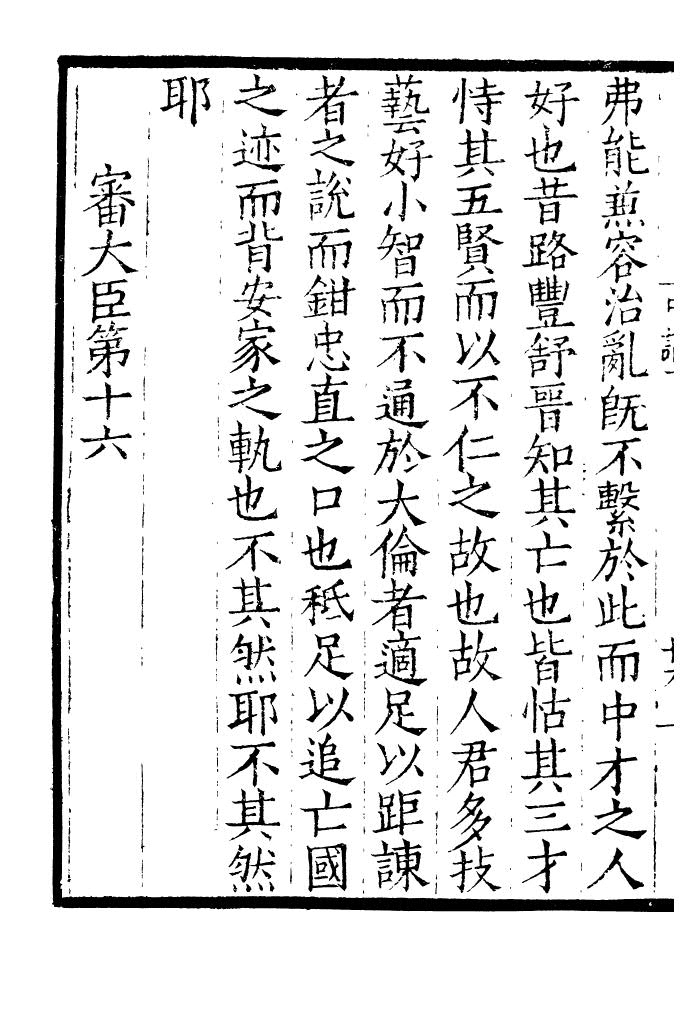 弗能兼容治亂旣不繫於此而中才之人
好也昔路豐舒晉知其亡也皆怙其三才
恃其五賢而以不仁之故也故人君多技
藝好小智而不通於大倫者適足以距諫
者之說而鉗忠直之口也秪足以追亡國
之迹而背安家之軌也不其然耶不其然
耶
審大臣第十六